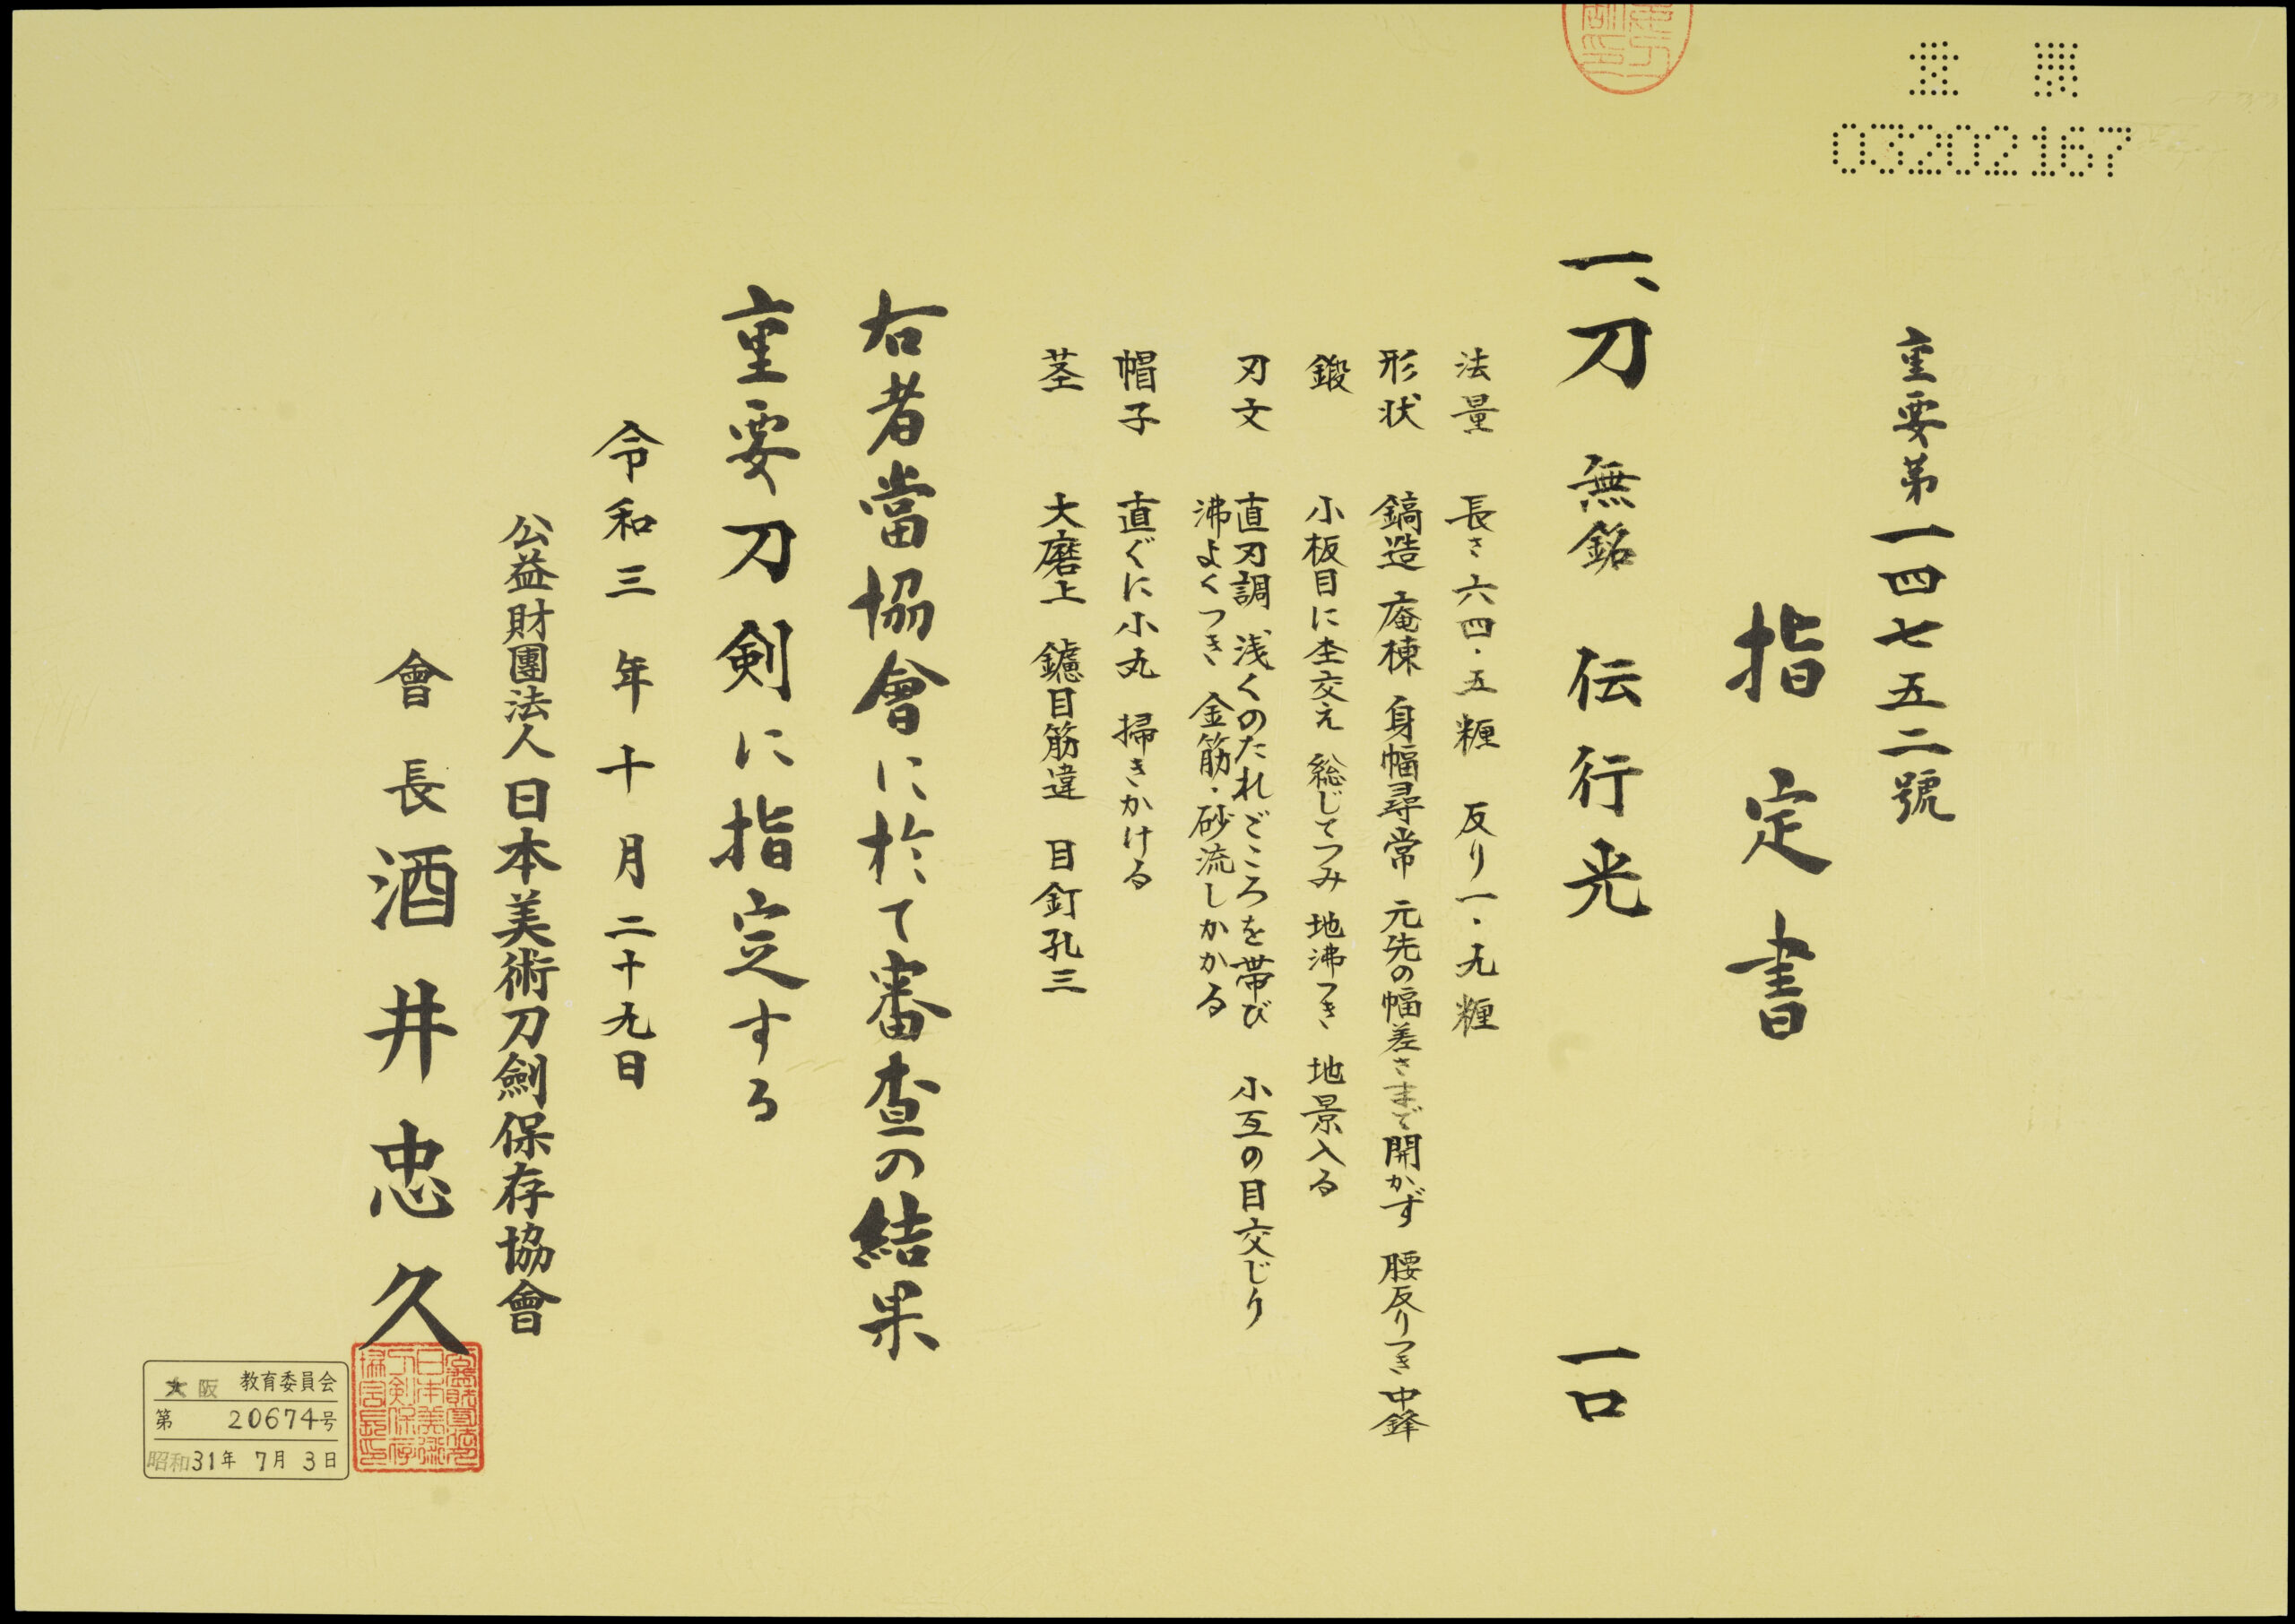 重要
03202167
重要第一四七五二號
指定書
一、刀 無銘 伝行光 一口
法量 長さ六四・五糎 反り一・九糎
形状 鎬造 庵棟 身幅尋常 元先の幅差さまで開かず 腰反りつき 中鋒
鍛 小板目に杢交え 総じてつみ 地沸つき 地景入る
刃文 直刃調 浅くのたれごころを帯び 小互の目交じり
沸よくつき 金筋・砂流しかかる
帽子 直ぐに小丸 掃きかける
茎 大磨上 鑢目筋違 目釘孔三
右者當協會に於て審査の結果
重要刀剣に指定する
令和三年十月二十九日
公益財團法人日本美術刀劍保存協會
會長 酒井忠久
大阪 教育委員会
第 20674号
昭和31年 7月 3日